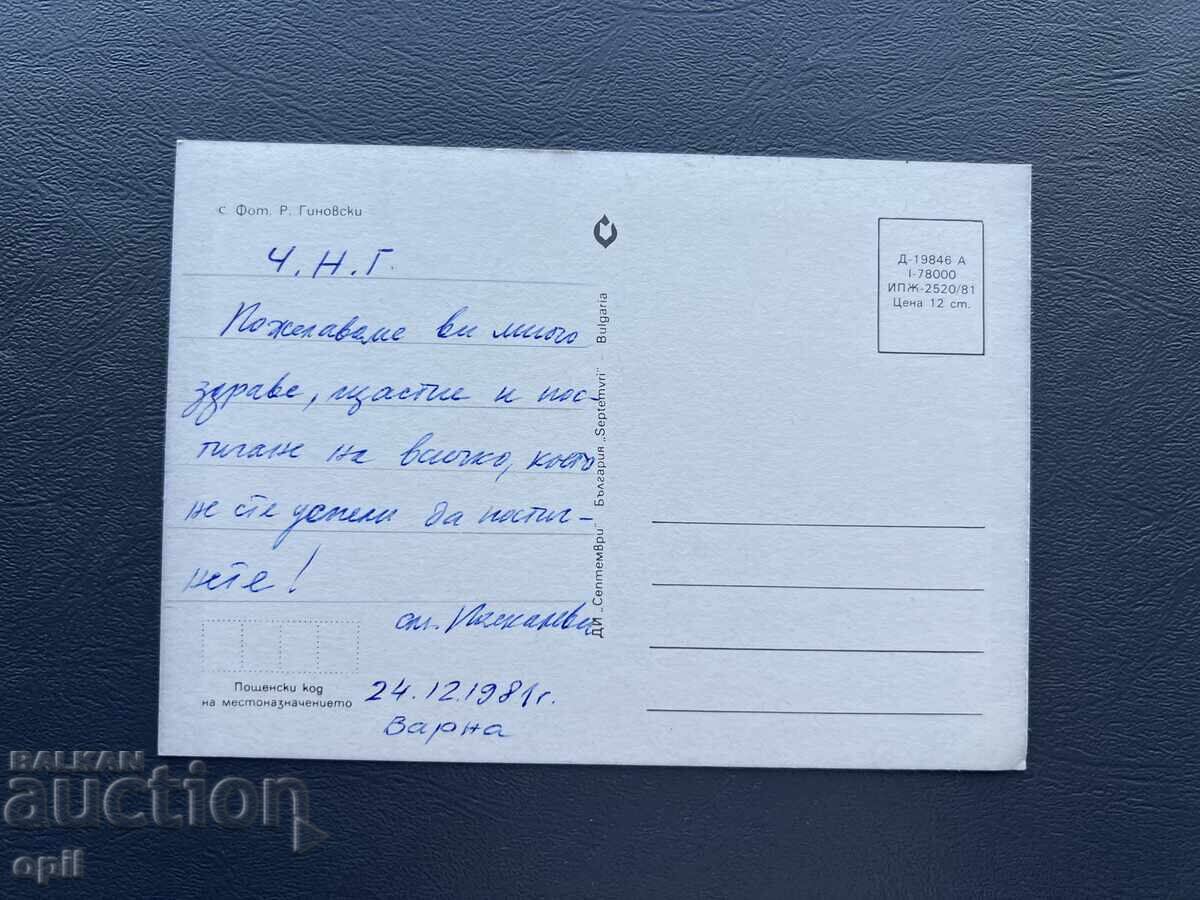 с Фот. Р. Гиновски
Ч.Н.Г.
Пожелаваме ви много
здраве, щастие и пос-
тигане на всичко, което
не сте успели да постиг-
нете!
24.12.1981г.
Варна
Пощенски код
на местоназначението
ДИ „Септември" България „Septemvri" - Bulgaria
Д-19846 А
I-78000
ИПЖ-2520/81
Цена 12 ст.
BALKAN
auction
opil